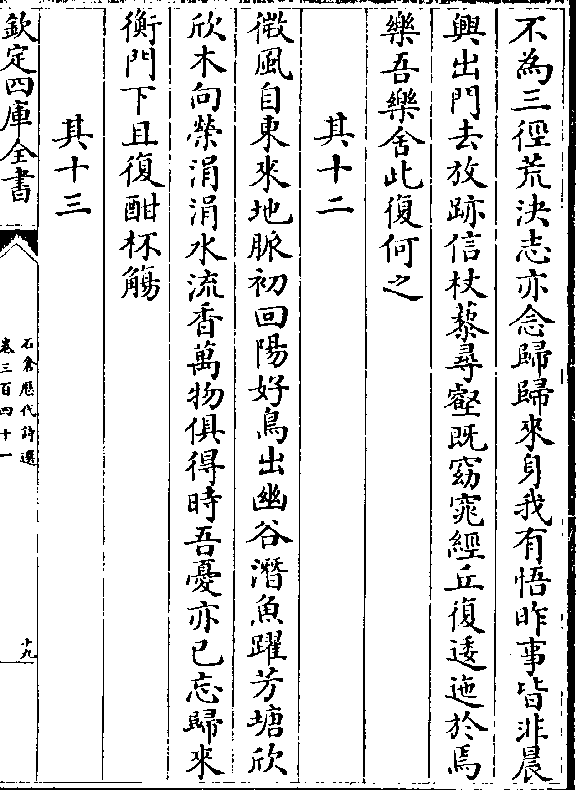 不為三徑荒決志亦念歸歸來身我有悟昨事皆非晨
興出門去放跡信杖藜尋壑既窈窕經丘復逶迤於焉
樂吾樂舍此復何之
其十二
微風自東來地脈初回陽好鳥出幽谷潛魚躍芳塘欣
欣木向榮涓涓水流香萬物俱得時吾憂亦已忘歸來
衡門下且復酣杯觴
其十三
欽定四庫全書
石倉歷代詩選
卷三百四十一
十九